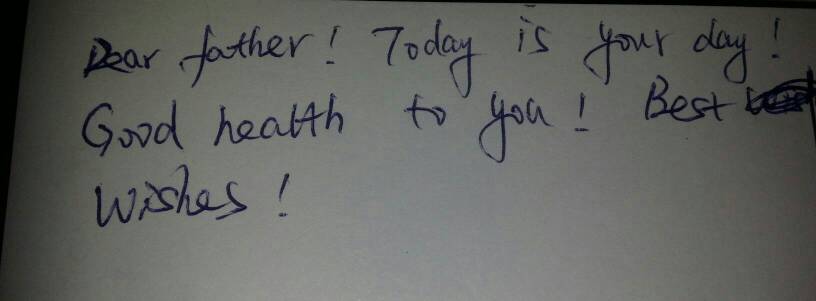 Dear father! Today is your day!
Good health to you! Best
Wishes!